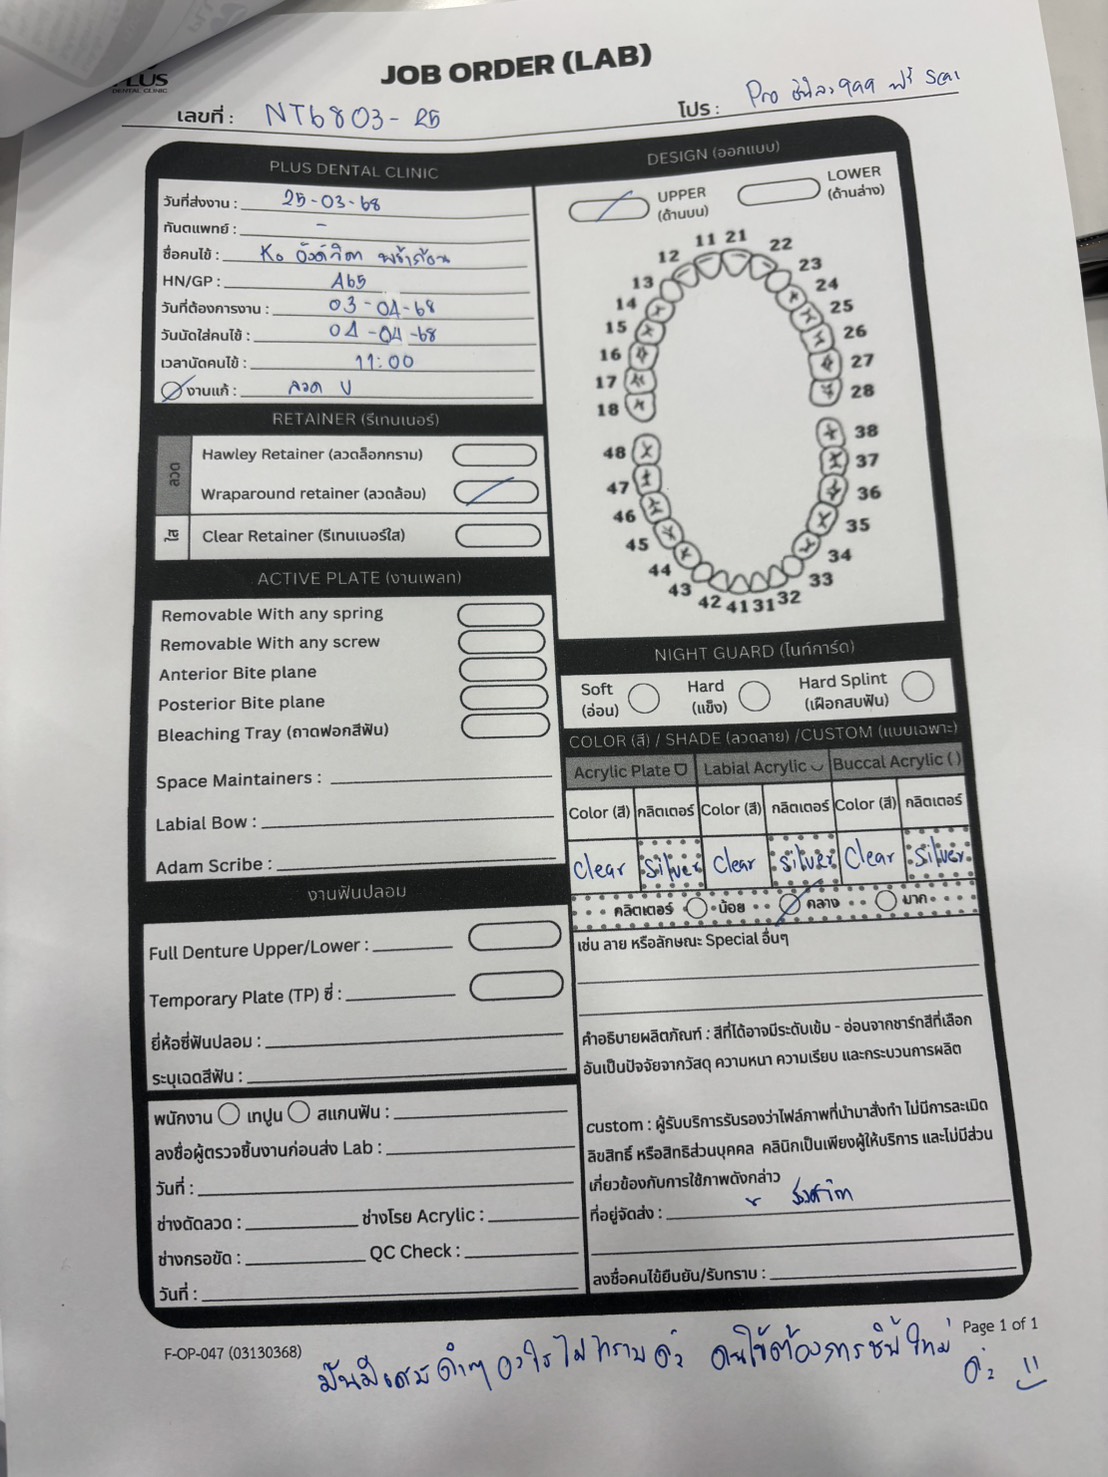 PLUS
DENTAL CLINIC
JOB ORDER (LAB)
เลขที่ : NT6803-25
โปร : Pro ชิ้นละ 999 ฟรี
PLUS DENTAL CLINIC
วันที่ส่งงาน : 25-03-68
ทันตแพทย์ : -
ชื่อคนไข้ :
HN/GP : A65
วันที่ต้องการงาน : 03-04-68
วันนัดใส่คนไข้ : 04-04-68
เวลานัดคนไข้ : 11:00
งานแก้ : ลวด U
RETAINER (รีเทนเนอร์)
ลวด
Hawley Retainer (ลวดล็อกกราม)
Wraparound retainer (ลวดล้อม)
ใส
Clear Retainer (รีเทนเนอร์ใส)
ACTIVE PLATE (งานเพลท)
Removable With any spring
Removable With any screw
Anterior Bite plane
Posterior Bite plane
Bleaching Tray (ถาดฟอกสีฟัน)
Space Maintainers :
Labial Bow :
Adam Scribe :
งานฟันปลอม
Full Denture Upper/Lower :
Temporary Plate (TP) ซี่ :
ยี่ห้อซี่ฟันปลอม :
ระบุเฉดสีฟัน :
พนักงาน เทปูน สแกนฟัน :
ลงชื่อผู้ตรวจชิ้นงานก่อนส่ง Lab :
วันที่ :
ช่างดัดลวด : ช่างโรย Acrylic :
ช่างกรอขัด : QC Check :
วันที่ :
DESIGN (ออกแบบ)
UPPER (ด้านบน)
LOWER (ด้านล่าง)
11 21
12 22
13 23
14 24
15 25
16 26
17 27
18 28
48 38
47 37
46 36
45 35
44 34
43 33
42 41 31 32
NIGHT GUARD (ไนท์การ์ด)
Soft (อ่อน)
Hard (แข็ง)
Hard Splint (เฝือกสบฟัน)
COLOR (สี) / SHADE (ลวดลาย) /CUSTOM (แบบเฉพาะ)
Acrylic Plate Labial Acrylic Buccal Acrylic ( )
Color (สี) กลิตเตอร์ Color (สี) กลิตเตอร์ Color (สี) กลิตเตอร์
Clear Silver Clear Silver Clear Silver
กลิตเตอร์ น้อย กลาง มาก
เช่น ลาย หรือลักษณะ Special อื่นๆ
คำอธิบายผลิตภัณฑ์ : สีที่ได้อาจมีระดับเข้ม - อ่อนจากชาร์ทสีที่เลือก
อันเป็นปัจจัยจากวัสดุ ความหนา ความเรียบ และกระบวนการผลิต
custom : ผู้รับบริการรับรองว่าไฟล์ภาพที่นำมาสั่งทำ ไม่มีการละเมิด
ลิขสิทธิ์ หรือสิทธิส่วนบุคคล คลินิกเป็นเพียงผู้ให้บริการ และไม่มีส่วน
เกี่ยวข้องกับการใช้ภาพดังกล่าว
ที่อยู่จัดส่ง :
ลงชื่อคนไข้ยืนยัน/รับทราบ :
F-OP-047 (03130368)
Page 1 of 1
มันมีเศษดำๆ อะไรไม่ทราบค่ะ คนไข้ต้องการชิ้นใหม่
ค่ะ